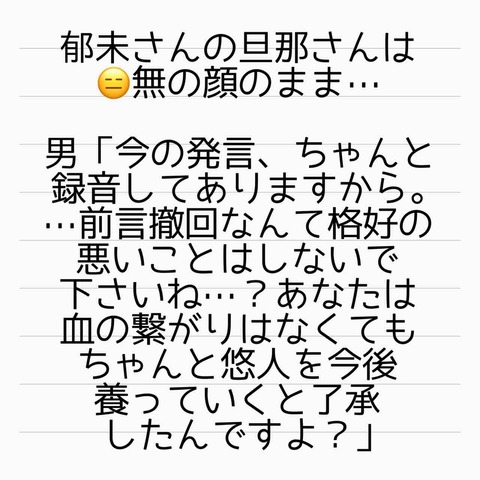 郁未さんの旦那さんは
😑無の顔のまま…
男「今の発言、ちゃんと
録音してありますから。
…前言撤回なんて格好の
悪いことはしないで
下さいね…？あなたは
血の繋がりはなくても
ちゃんと悠人を今後
養っていくと了承
したんですよ？」